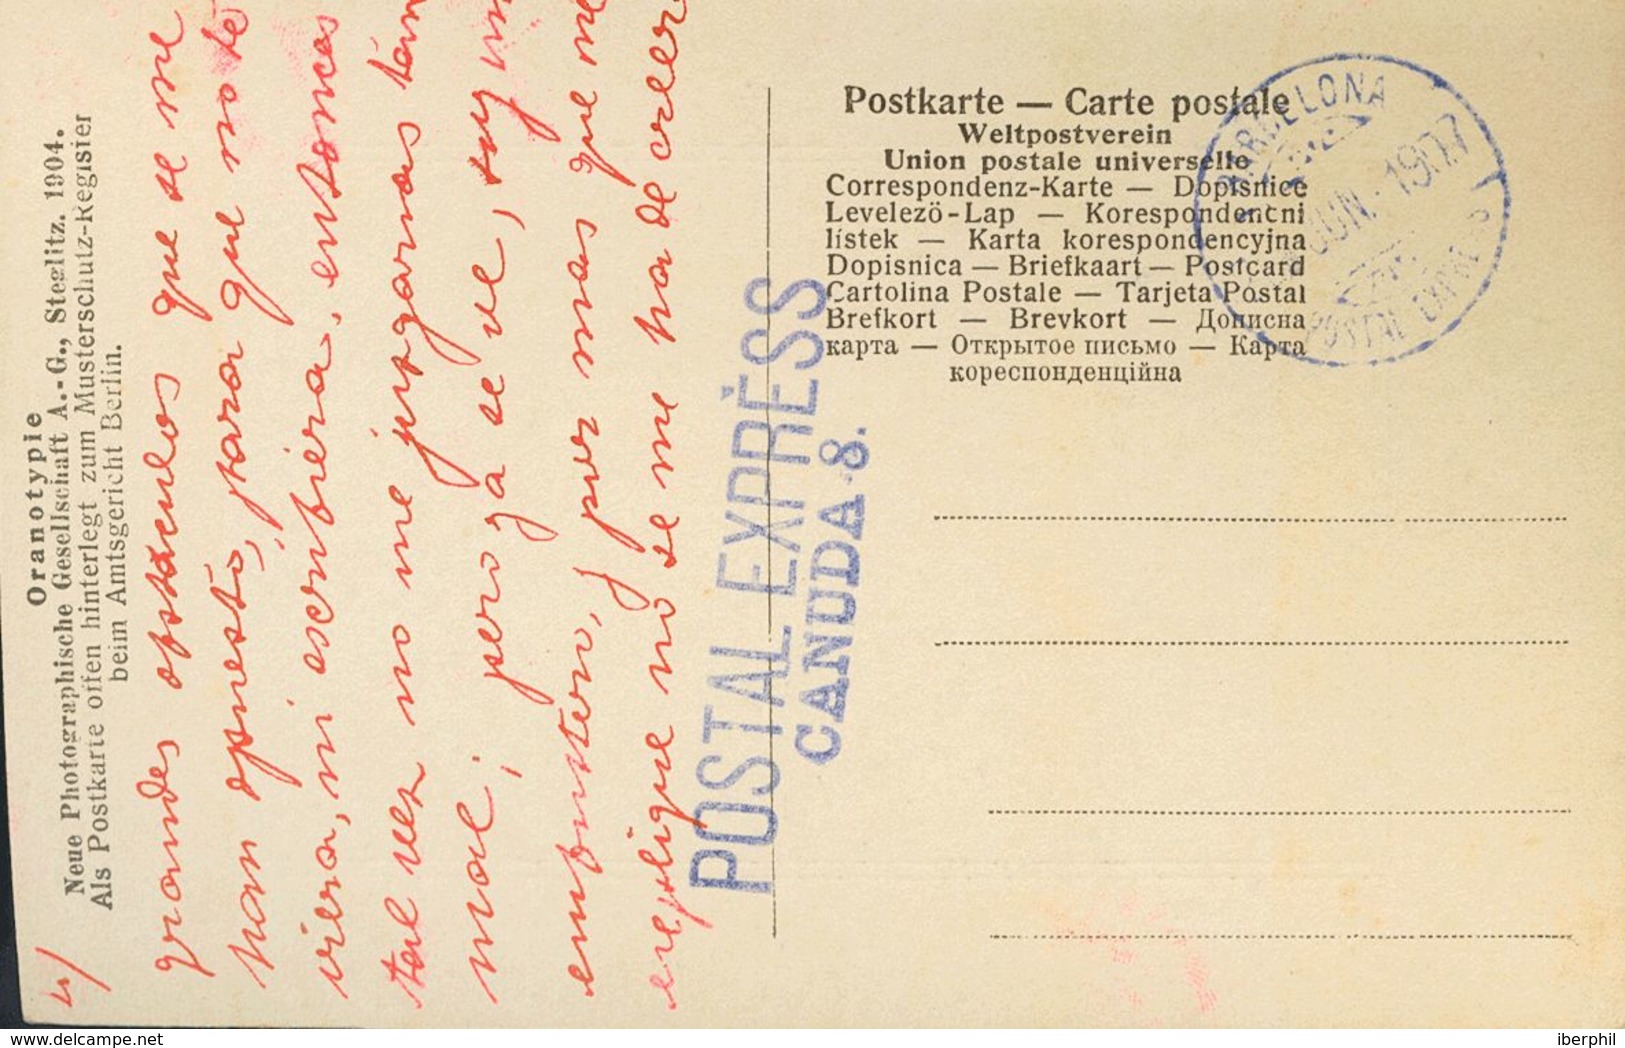 4)
Oranotypie
Neue Photographische Gesellschaft A.-G., Steglitz. 1904.
Als Postkarte offen hinterlegt zum Musterschutz-Register
beim Amtsgericht Berlin.
grandes obstaculos que se me
han opuesto, para que no te
viera, ni escribiera, entonces
tal vez no me juzgarias tan
mal; pero, ya se ve, soy un
embustero, y por mas que me
explique no se me ha de creer
POSTAL EXPRÈSS
CANUDA 8.
Postkarte — Carte postale
Weltpostverein
Union postale universelle
Correspondenz-Karte — Dopisnice
Levelező-Lap — Korespondenční
lístek — Karta korespondencyjna
Dopisnica — Briefkaart — Postcard
Cartolina Postale — Tarjeta Postal
Brefkort — Brevkort — Дописна
карта — Открытое письмо — Карта
кореспонденційна
BARCELONA
JUN. 1907
POSTAL EXPRÈSS
delcampe.net
iberphil